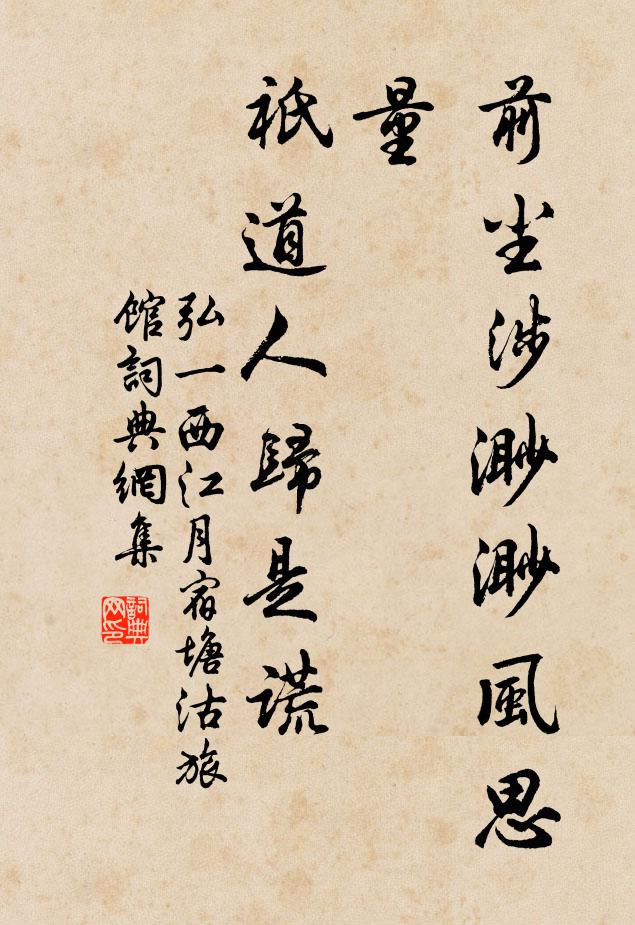 前尘涉渺渺風思
量
祇道人歸是謊
弘一西江月宿塘沽旅
館詞典網集
詞典
网印